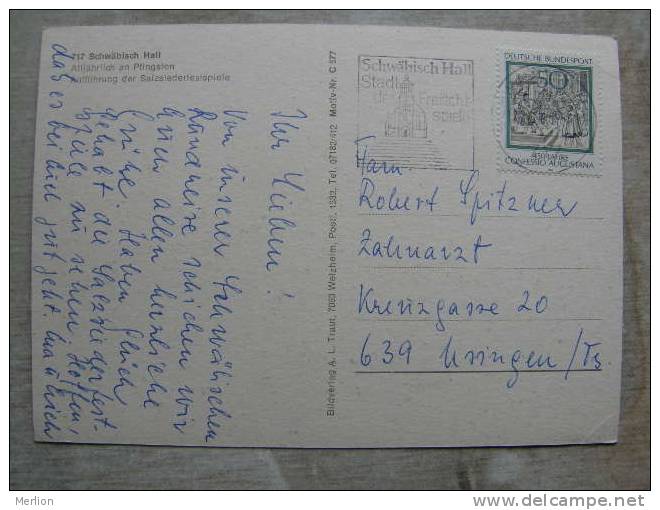 717 Schwäbisch Hall
Alljährlich an Pfingsten
Aufführung der Salzsiederfestspiele
Ihr Lieben!
Von unserer Schwäbischen
Rundreise schicken wir
Euch allen herzliche
Grüße. Haben gleich
gehabt die Salzsiederfest-
spiele zu sehen. Hoffen,
daß es bei Euch gut geht
Bildverlag A. L. Traut, 7063 Welzheim, Postf. 1333, Tel. 07182/412 Motiv-Nr. C 577
Schwäbisch Hall
Stadt
der Freilicht-
spiele
DEUTSCHE BUNDESPOST
50
450 JAHRE
CONFESSIO AUGUSTANA
Fam.
Robert Spitzner
Zahnarzt
Kreuzgasse 20
639 Usingen/Ts
Merlion
www.delcampe.net